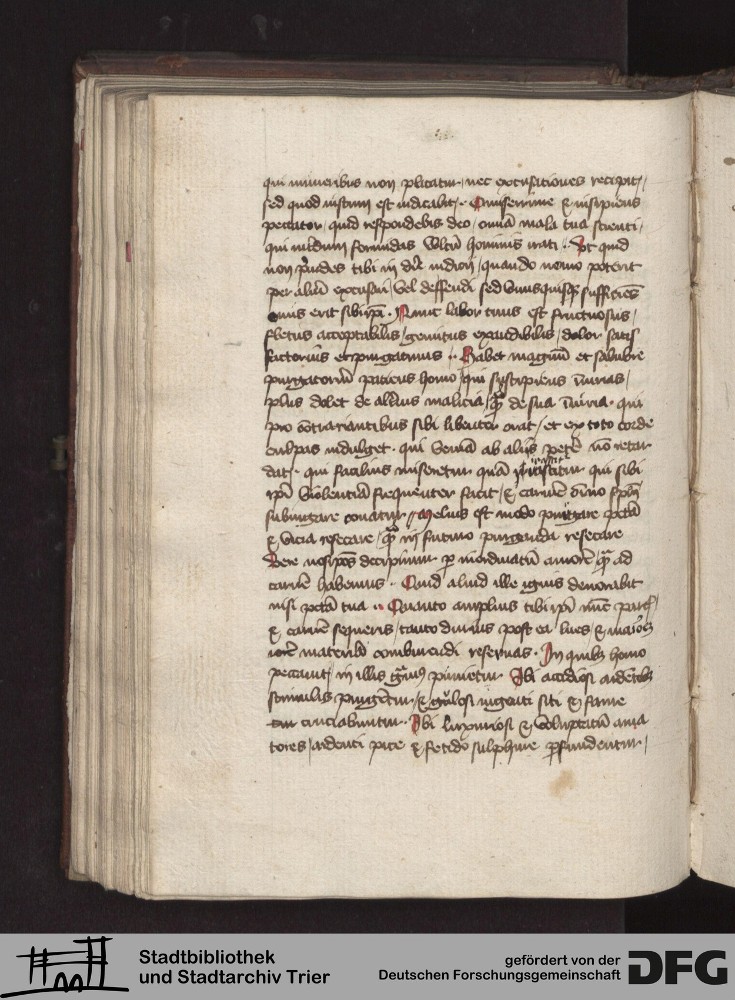 qui muneribus non placatur / nec excusationes recipit /
sed quod iustum est iudicabit. O miserrime et insipiens
peccator / quid respondebis deo / omnia mala tua scienti /
qui interdum formidas vultum hominis irati. Ut quid
non prouides tibi in die iudicii / quando nemo poterit
per alium excusari / vel deffendi sed vnusquisque sufficiens
onus erit sibi ipsi. Nunc labor tuus est fructuosus /
fletus acceptabilis / gemitus exaudibilis / dolor satis
factorius et purgatiuus. Habet magnum et salubre
purgatorium paciens homo / qui suscipiens iniurias /
plus dolet de alterius malicia / quam de sua iniuria. qui
pro contrariantibus sibi libenter orat / et ex toto corde
culpas indulget. qui veniam ab aliis petere non retar
dat. qui facilius miseretur quam irascitur qui sibi
ipsi violentiam frequenter facit / et carnem omnino spiritui
subiugare conatur / Melius est modo purgare peccata
et vicia resecare / quam in futuro purganda resecare
Vere nosipsos decipimus per inordinatum amorem / quem ad
carnem habemus. Quid aliud ille ignis deuorabit
nisi peccata tua. Quanto amplius tibi ipsi nunc parcis /
et carnem sequeris / tanto durius post ea lues / et maio
rem materiam comburendi reseruas. In quibus homo
peccauit / in illis grauius punietur. Ibi accidiosi ardentibus
stimulis pungentur / et gulosi ingenti siti et fame
cruciabuntur. Ibi luxuriosi et voluptatum ama
tores / ardenti pice et fetido sulphure perfundentur /
Stadtbibliothek
und Stadtarchiv Trier
gefördert von der
Deutschen Forschungsgemeinschaft
DFG